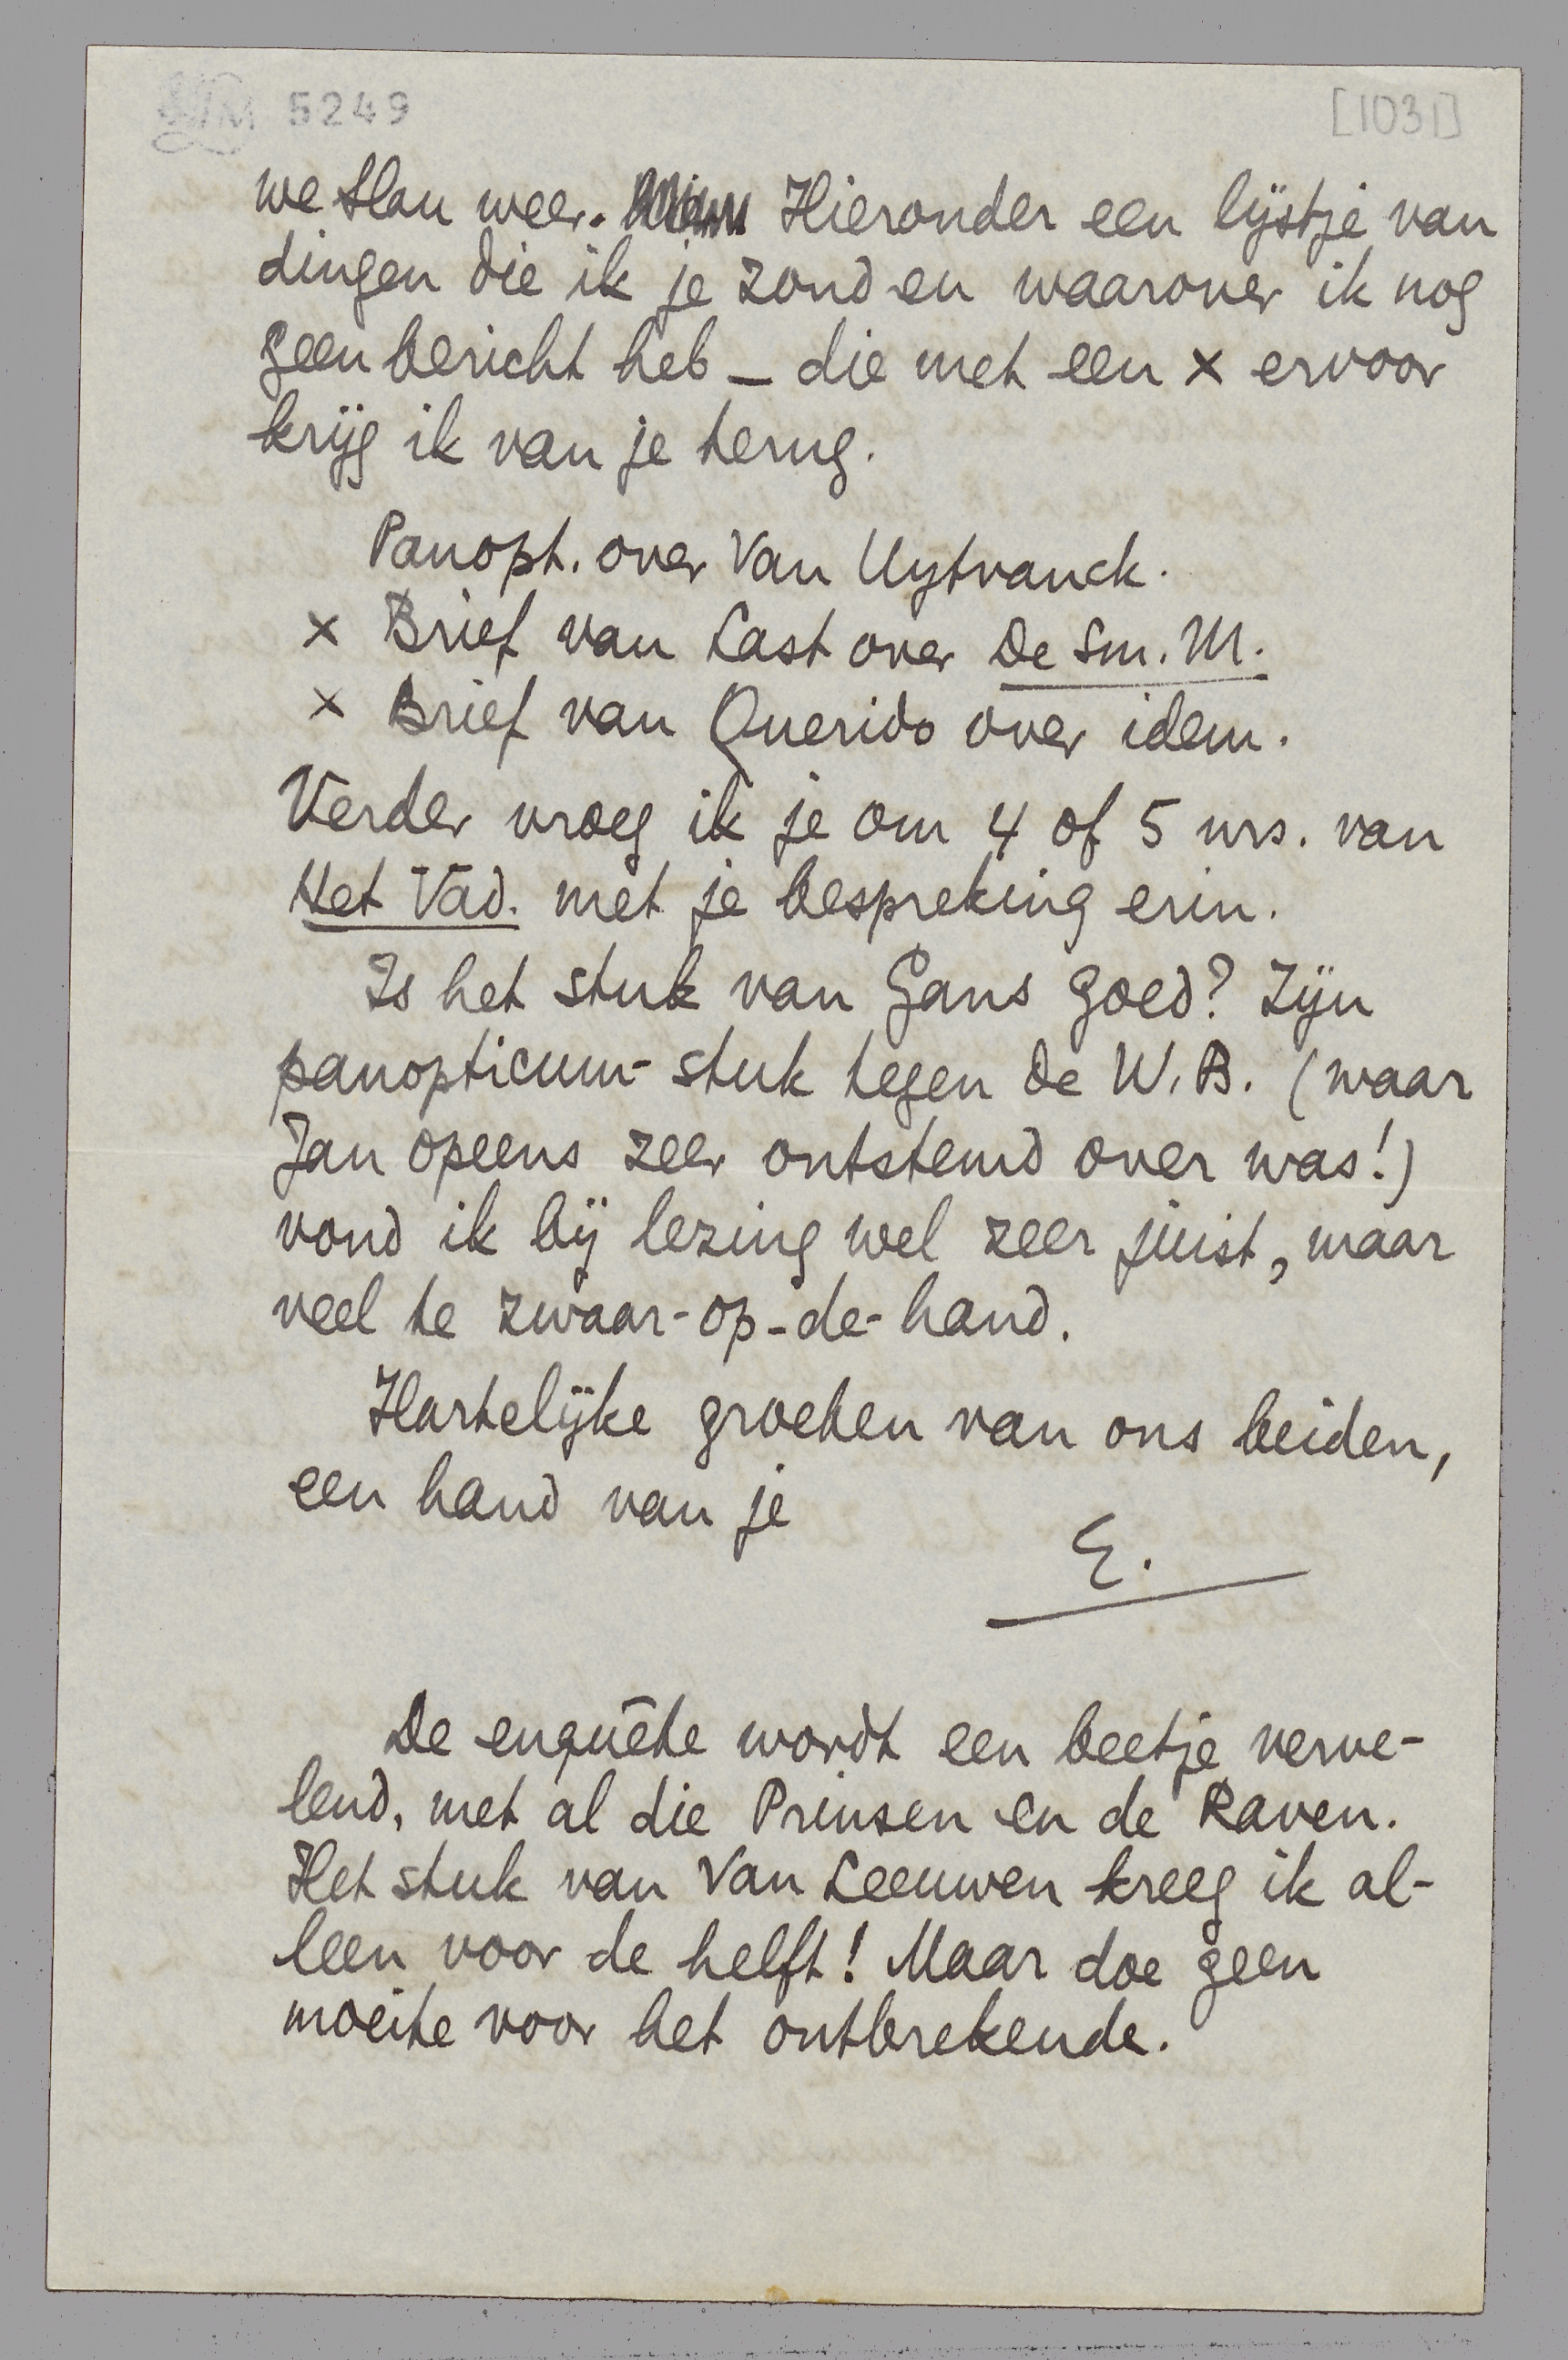 5249
[1031]
we slau weer. Hieronder een lijstje van
dingen die ik je zond en waarover ik nog
geen bericht heb – die met een × ervoor
krijg ik van je terug.
Panopt. over Van Uytvanck.
× Brief van Last over De Sm. M.
× Brief van Querido over idem.
Verder vroeg ik je om 4 of 5 nrs. van
Het Vad. met je bespreking erin.
Is het stuk van Gans goed? Zijn
panopticum-stuk tegen de W.B. (waar
Jan opeens zeer ontstemd over was!)
vond ik bij lezing wel zeer juist, maar
veel te zwaar-op-de-hand.
Hartelijke groeten van ons beiden,
een hand van je
E.
De enquête wordt een beetje verve-
lend, met al die Prinsen en de Raven.
Het stuk van Van Leeuwen kreeg ik al-
leen voor de helft! Maar doe geen
moeite voor het ontbrekende.